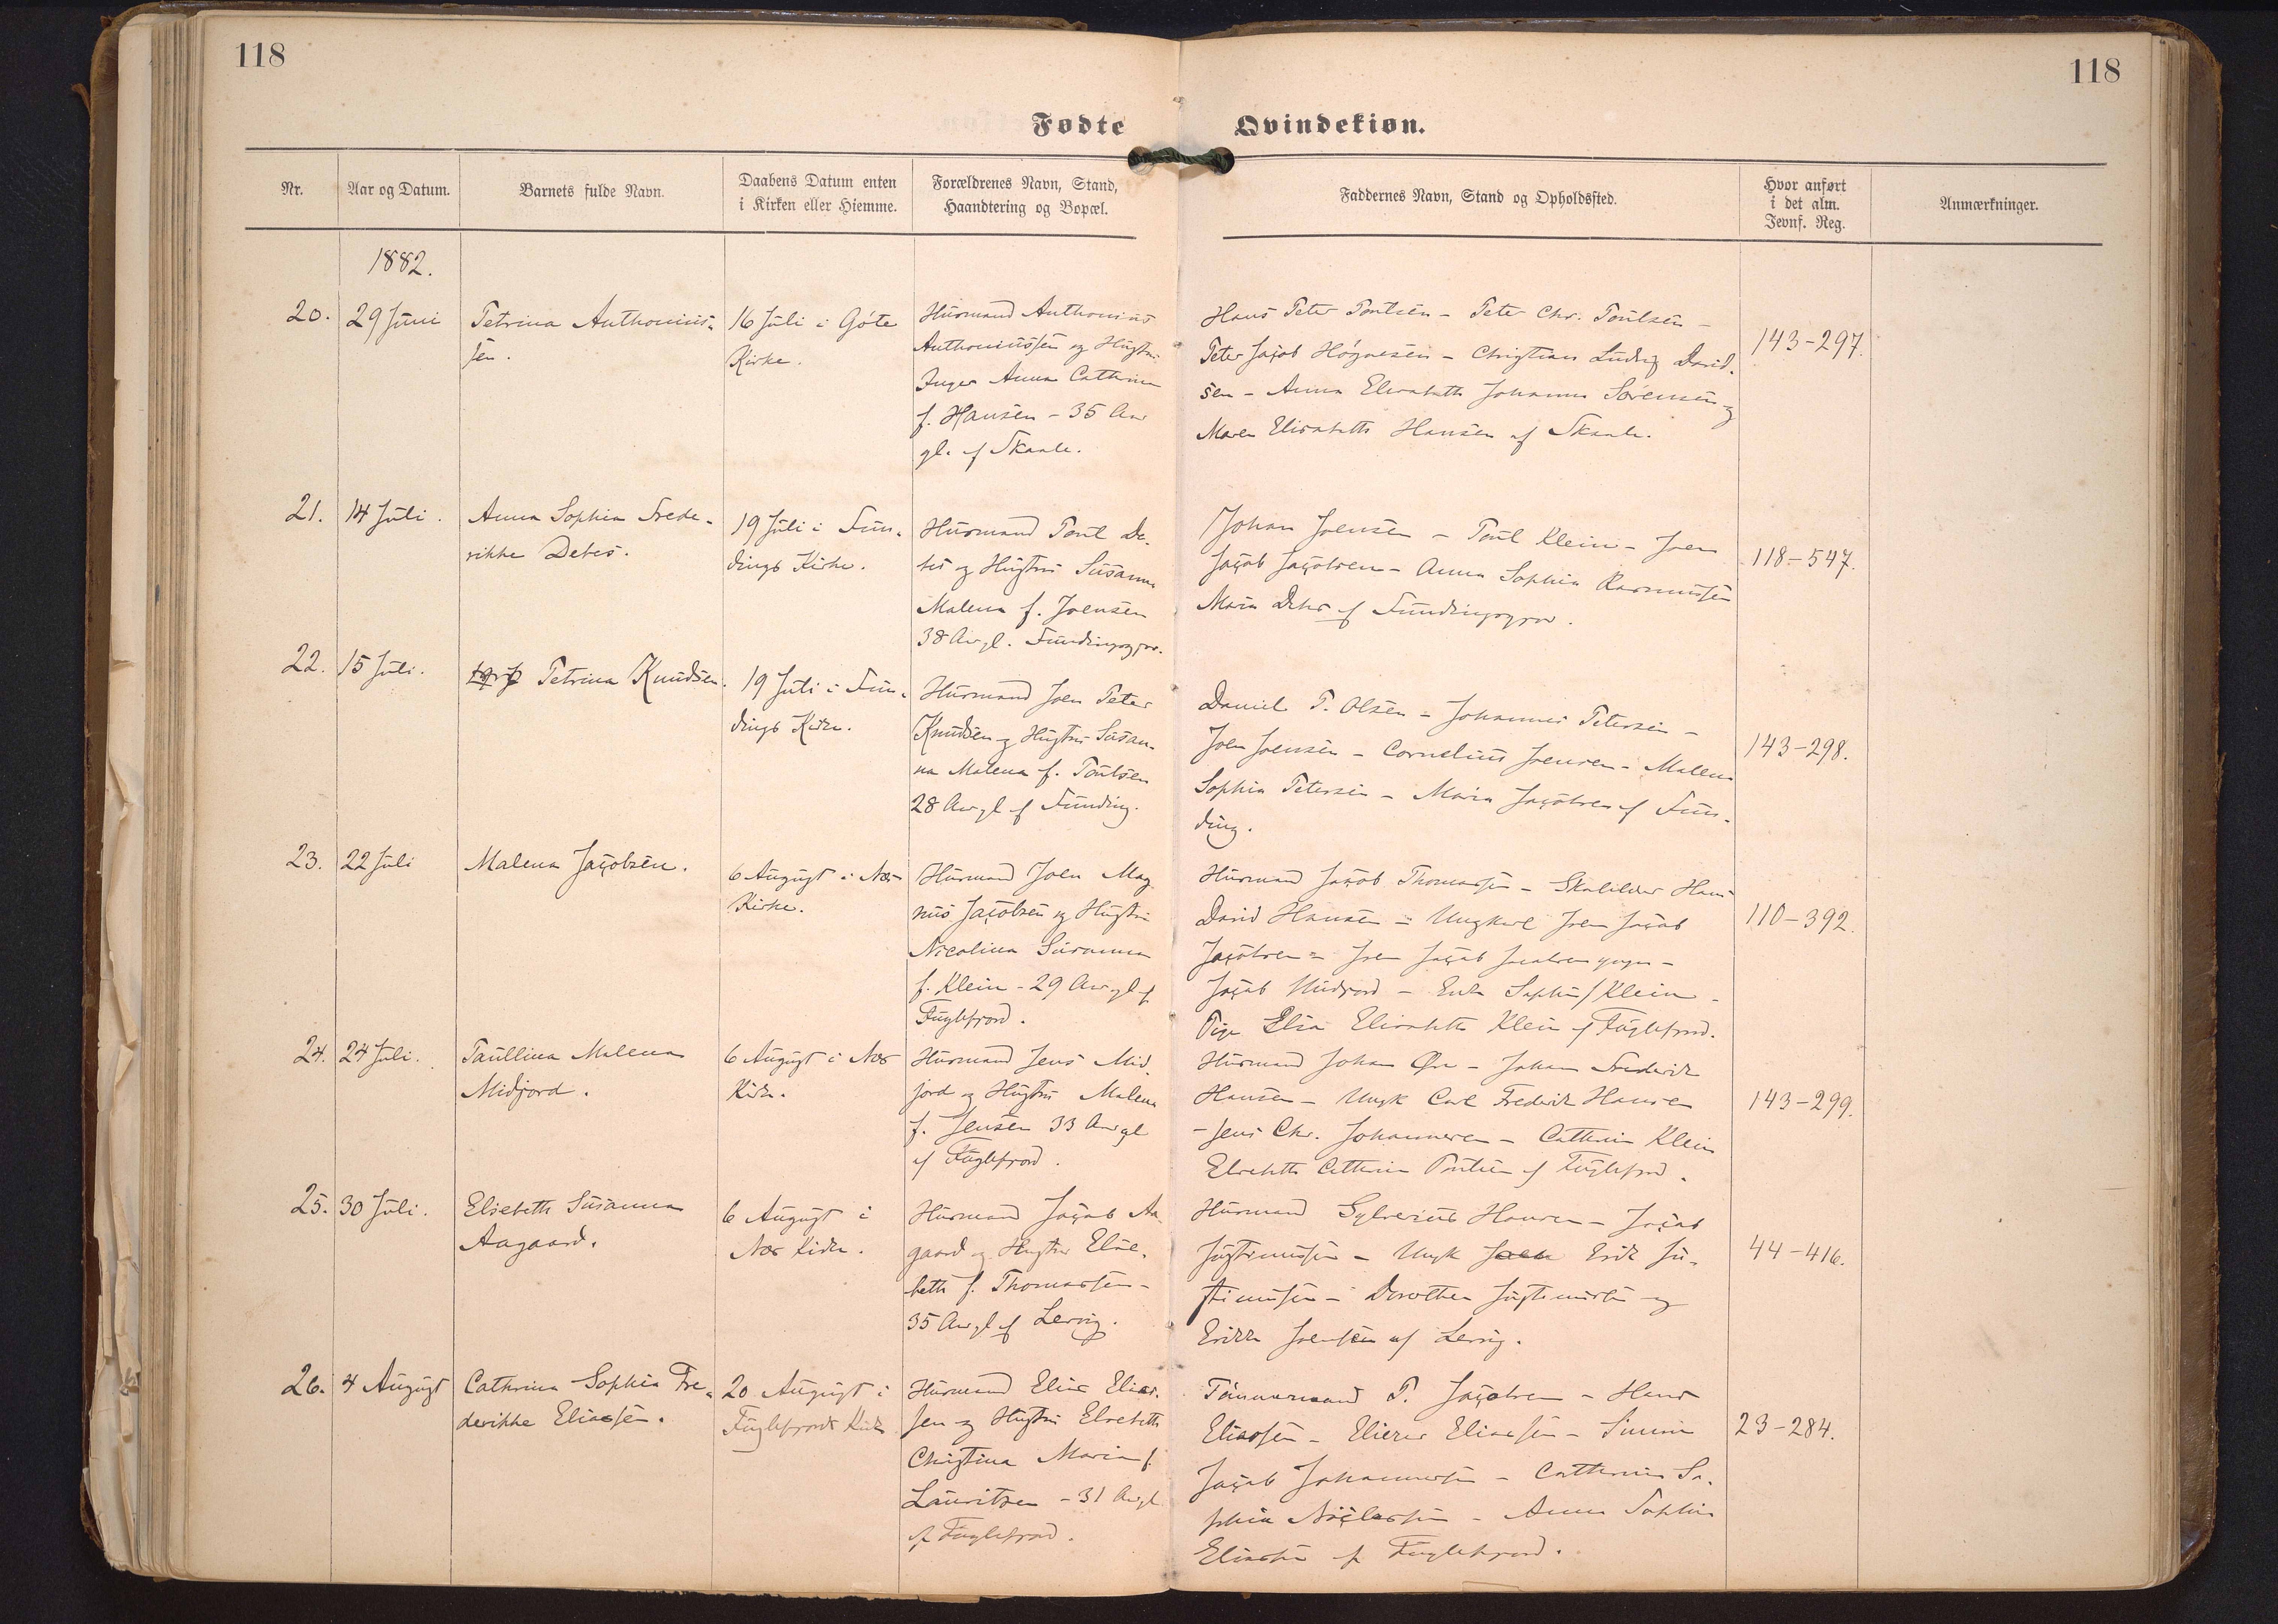 118
118
Fødte
Qvindekiøn.
Nr.
Aar og Datum.
Barnets fulde Navn.
Daabens Datum enten
i Kirken eller Hiemme.
Forældrenes Navn, Stand,
Haandtering og Bopæl.
Faddernes Navn, Stand og Opholdssted.
Hvor anført
i det alm.
Jevnf. Reg.
Anmærkninger.
1882.
20.
29 Juni
Petrina Anthonius-
sen.
16 Juli i Góte
Kirke.
Husmand Anthonius
Anthoniussen og Hustru
Inger Anna Cathrina
f. Hansen - 35 Aar
gl. af Skaale.
Hans Peter Poulsen - Peter Chr. Poulsen -
Peter Jacob Høgnesen - Christian Ludvig David-
sen - Anna Elisabeth Johanna Sørensen og
Maren Elisabeth Hansen af Skaale.
143-297.
21.
14 Juli.
Anna Sophia Frede-
rikke Debes.
19 Juli i Fun-
dings Kirke.
Husmand Poul De-
bes og Hustru Susanna
Malena f. Joensen
38 Aar gl. Fundingsgjov.
Johan Joensen - Poul Klein - Joen
Jacob Jacobsen - Anna Sophia Rasmussen
Maria Debes af Fundingsgjov.
118-547.
22.
15 Juli.
Petrina Knudsen.
19 Juli i Fun-
dings Kirke.
Husmand Joen Peter
Knudsen og Hustru Susan-
na Malena f. Poulsen
28 Aar gl af Funding.
Daniel P. Olsen - Johannes Petersen -
Joen Joensen - Cornelius Joensen - Malena
Sophia Petersen - Maria Jacobsen af Fun-
ding.
143-298.
23.
22 Juli
Malena Jacobsen.
6 August i Nos
Kirke.
Husmand Joen Mag-
nus Jacobsen og Hustru
Nicolina Susanna
f. Klein - 29 Aar gl af
Fuglefjord.
Husmand Jacob Thomassen - Hans
David Hansen - Ungkarl Joen Jacob
Jacobsen - Joen Jacob Jacobsen -
Jacob Midjord - Enke Klein -
Pige Elsa Elisabeth Klein af Fuglefjord.
110-392.
24.
24 Juli.
Paullina Malena
Midjord.
6 August i Nos
Kirke.
Husmand Jens Mid-
jord og Hustru Malena
f. Jensen 33 Aar gl
af Fuglefjord.
Husmand Johan - Johan Frederik
Hansen - Ungk Carl Frederik Hansen
- Jens Chr. Johannesen - Cathrina Klein
Elsebeth Cathrina Poulsen af Fuglefjord.
143-299.
25.
30 Juli.
Elsebeth Susanna
Aagaard.
6 August i
Nos Kirke.
Husmand Jacob Aa-
gaard og Hustru Else-
beth f. Thomassen -
35 Aar gl af Lervig.
Husmand Sylverius Hansen - Jacob
Justinussen - Ungk Joen Erik Ju-
stinussen - Dorothea Justinussen og
Erikka Joensen af Lervig.
44-416.
26.
4 August
Cathrina Sophia Fre-
derikke Eliassen.
20 August i
Fuglefjords Kirke
Husmand Elias Elias-
sen og Hustru Elsebeth
Christina Maria f.
Lauritsen - 31 Aar gl
af Fuglefjord.
Tømmermand P. Jacobsen - Hans
Eliassen - Eliassen - Simon
Jacob Johannessen - Cathrina So-
phia Niclassen - Anna Sophia
Eliassen af Fuglefjord.
23-284.